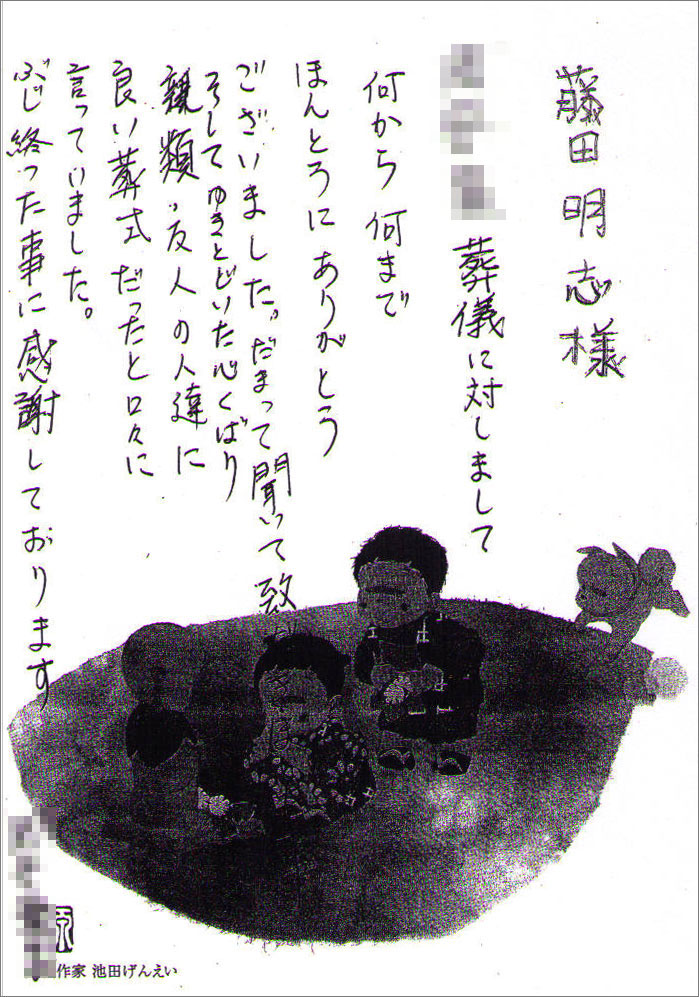 藤田明志様
葬儀に対しまして
何から何まで
ほんとうにありがとう
ございました。だまって聞いて致
そしてゆきとどいた心くばり
親類、友人の人達に
良い葬式だったと口々に
言っていました。
ぶじ終った事に感謝しております
作家 池田げんえい